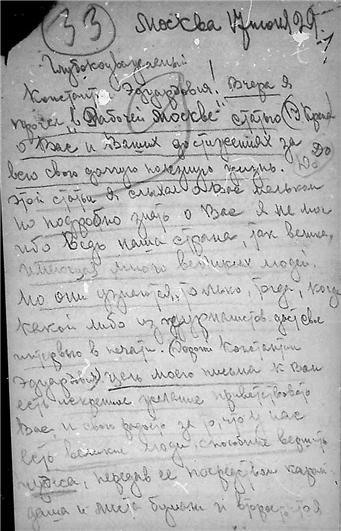 33 Москва 17 июня 29
Глубокоуважаемый
Константин Эдуардович! Вчера я
прочел в "Рабочей Москве" статью
о Вас и Ваших достижениях за
всю свою долгую полезную жизнь. До
этой статьи я слыхал о Вас мельком
но подробно знать о Вас я не мог
ибо ведь наша страна, так велика,
имеющая много великих людей.
но они узнаются, только, тогда, когда
какой либо из журналистов даст свое
интервью в печати. (Дорогой Константин
Эдуардович) цель моего письма к Вам
есть искреннее желание приветствовать
Вас, и свою радость за то, что у нас
есть великие люди, способные вершить
чудеса, передав ее посредством каран
даша и листа бумаги и